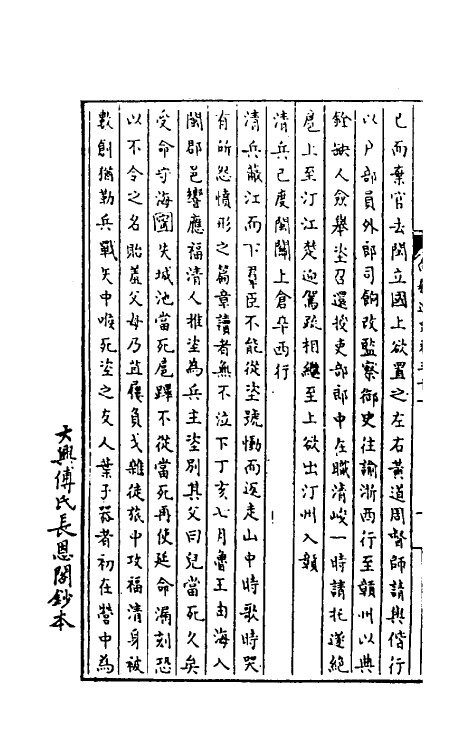 已而棄官去閩立國上欲置之左右黃道周督師請與偕行
以戶部員外郎司餉改監察御史往諭浙西行至贛州以典
銓缺人僉舉垐召還授吏部郎中在職清峻一時請托遂絕
扈上至汀江楚迎駕疏相繼至上欲出汀州入贛
清兵已度閩關上倉卒西行
清兵蔽江而下羣臣不能從垐號慟而返走山中時歌時哭
有所怨憤形之篇章讀者無不泣下丁亥七月魯王由海入
閩郡邑響應福清人推垐為兵主垐別其父曰兒當死久矣
受命守海國失城池當死扈蹕不從當死再使延命漏刻恐
以不令之名貽羞父母乃草屨負戈雜徒旅中攻福清身被
數創猶勤兵戰矢中喉死垐之友人葉子器者初在營中為
大興傅氏長恩閣鈔本